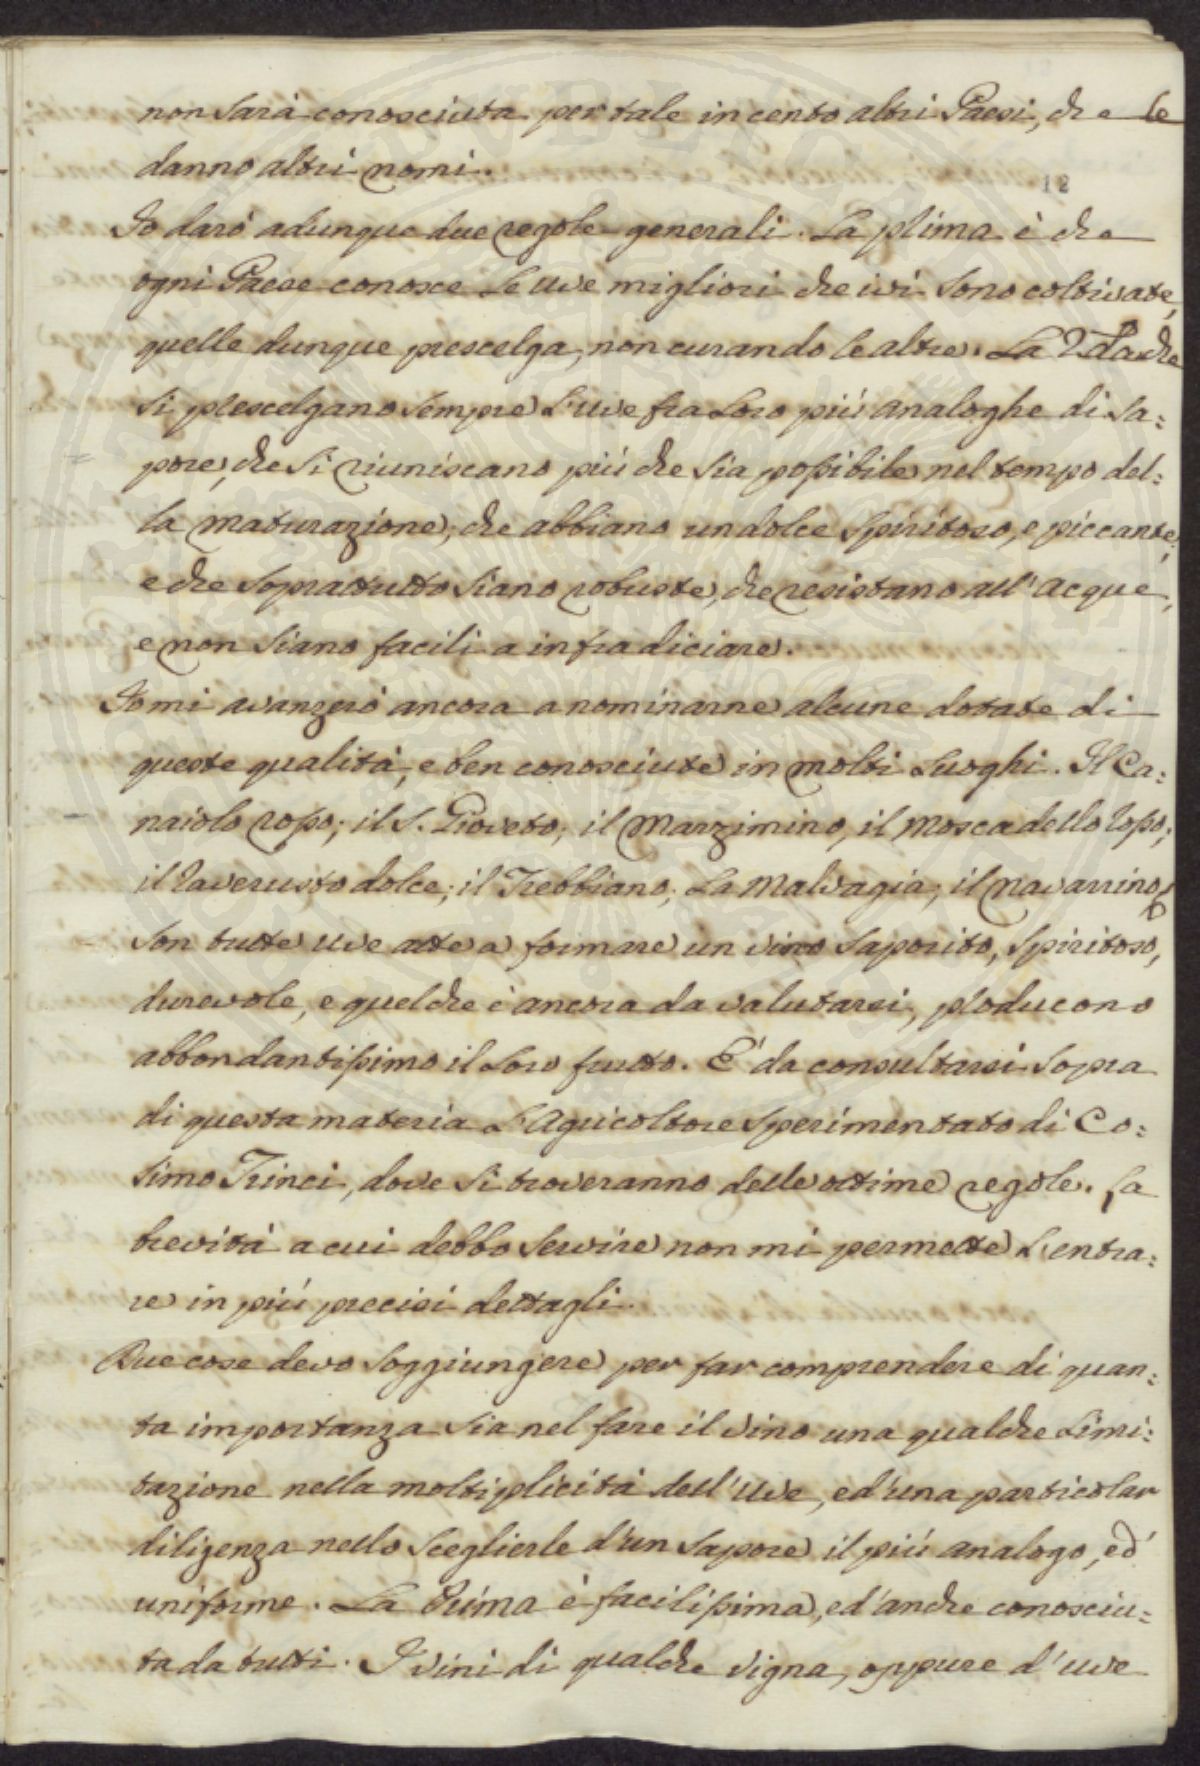 non sarà conosciuta per tale in cento altri Paesi, che le
danno altri nomi.
12
Io darò adunque due regole generali. La prima è che
ogni Paese conosce le uve migliori che ivi sono coltivate,
quelle dunque prescelga, non curando le altre. La 2.da che
si prescelgano sempre l'uve fra loro più analoghe di sa:
pore, che si riuniscano più che sia possibile nel tempo del:
la maturazione, che abbiano un dolce spiritoso, e piccante,
e che soprattutto siano robuste, che resistano all'acque,
e non siano facili a infradiciare.
Io mi avanzerò ancora a nominarne alcune dotate di
queste qualità, e ben conosciute in molti luoghi. Il Ca:
naiolo rosso; il S. Gioveto; il Marzimino, il Moscadello rosso;
il Raverusto dolce; il Trebbiano; la Malvagia; il Navarrino,
son tutte uve atte a formare un vino saporito, spiritoso,
durevole, e quelche è ancora da valutarsi, producono
abbondantissimo il loro frutto. E' da consultarsi sopra
di questa materia l'Agricoltore sperimentato di Co:
simo Trinci, dove si troveranno delle ottime regole. La
brevità a cui debbo servire non mi permette l'entra:
re in più precisi dettagli.
Due cose devo soggiungere per far comprendere di quan:
ta importanza sia nel fare il vino una qualche limi:
tazione nella moltiplicità dell'uve, ed'una particolar
diligenza nello sceglierle d'un sapore il più analogo, ed'
uniforme. La Prima è facilissima, ed'anche conosciu:
ta da tutti. I vini di qualche vigna, oppure d'uve